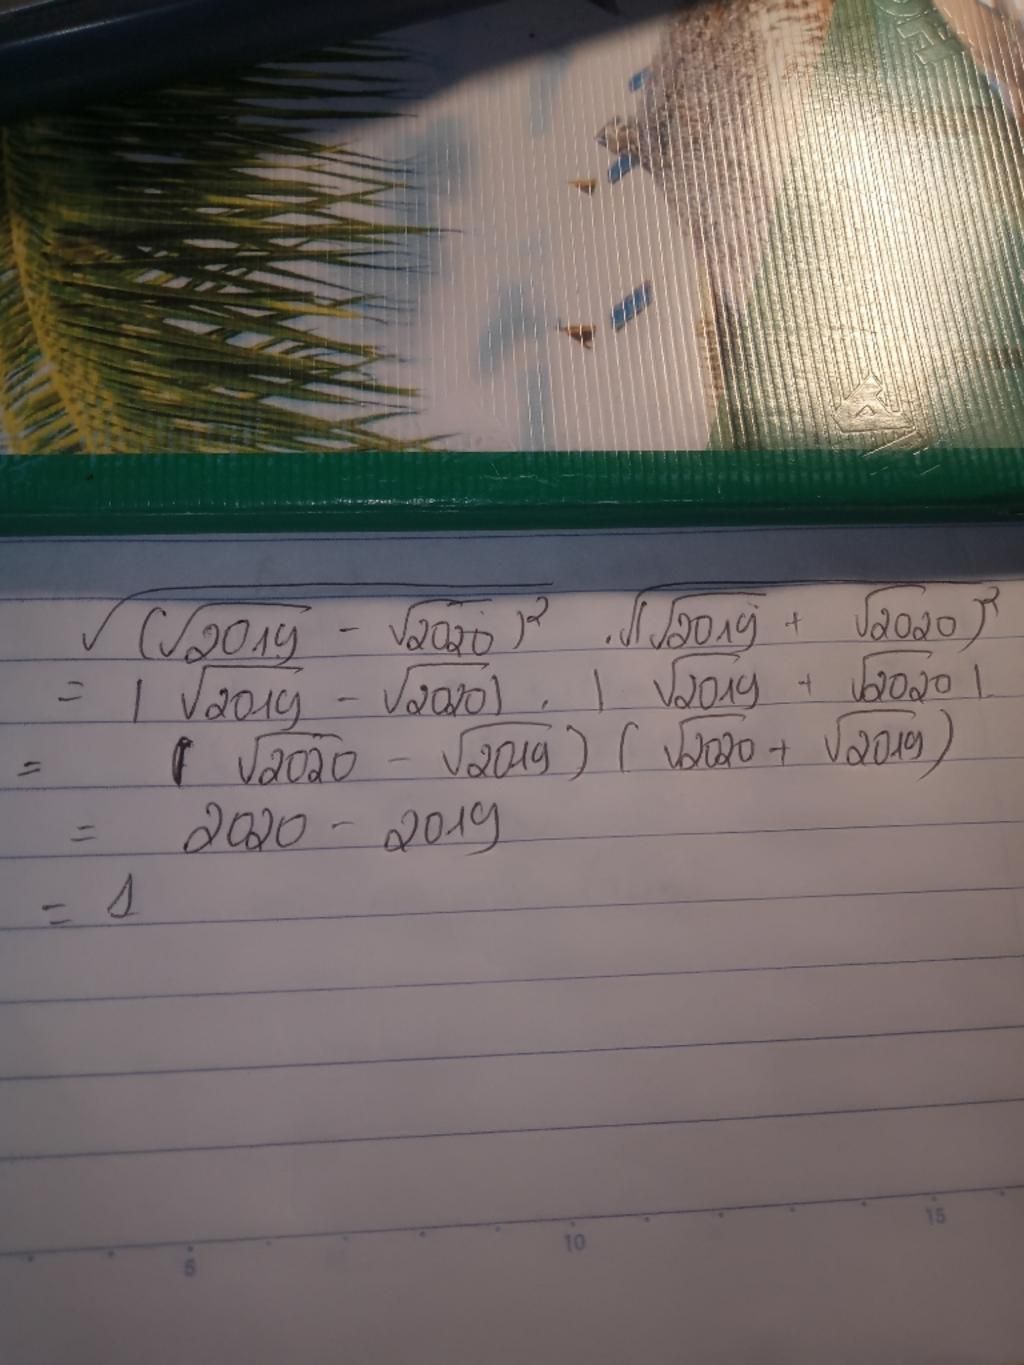 √(√2019 - √2020)² . √(√2019 + √2020)²
= | √2019 - √2020 | . | √2019 + √2020 |
= ( √2020 - √2019 ) ( √2020 + √2019 )
= 2020 - 2019
= 1
5 10 15